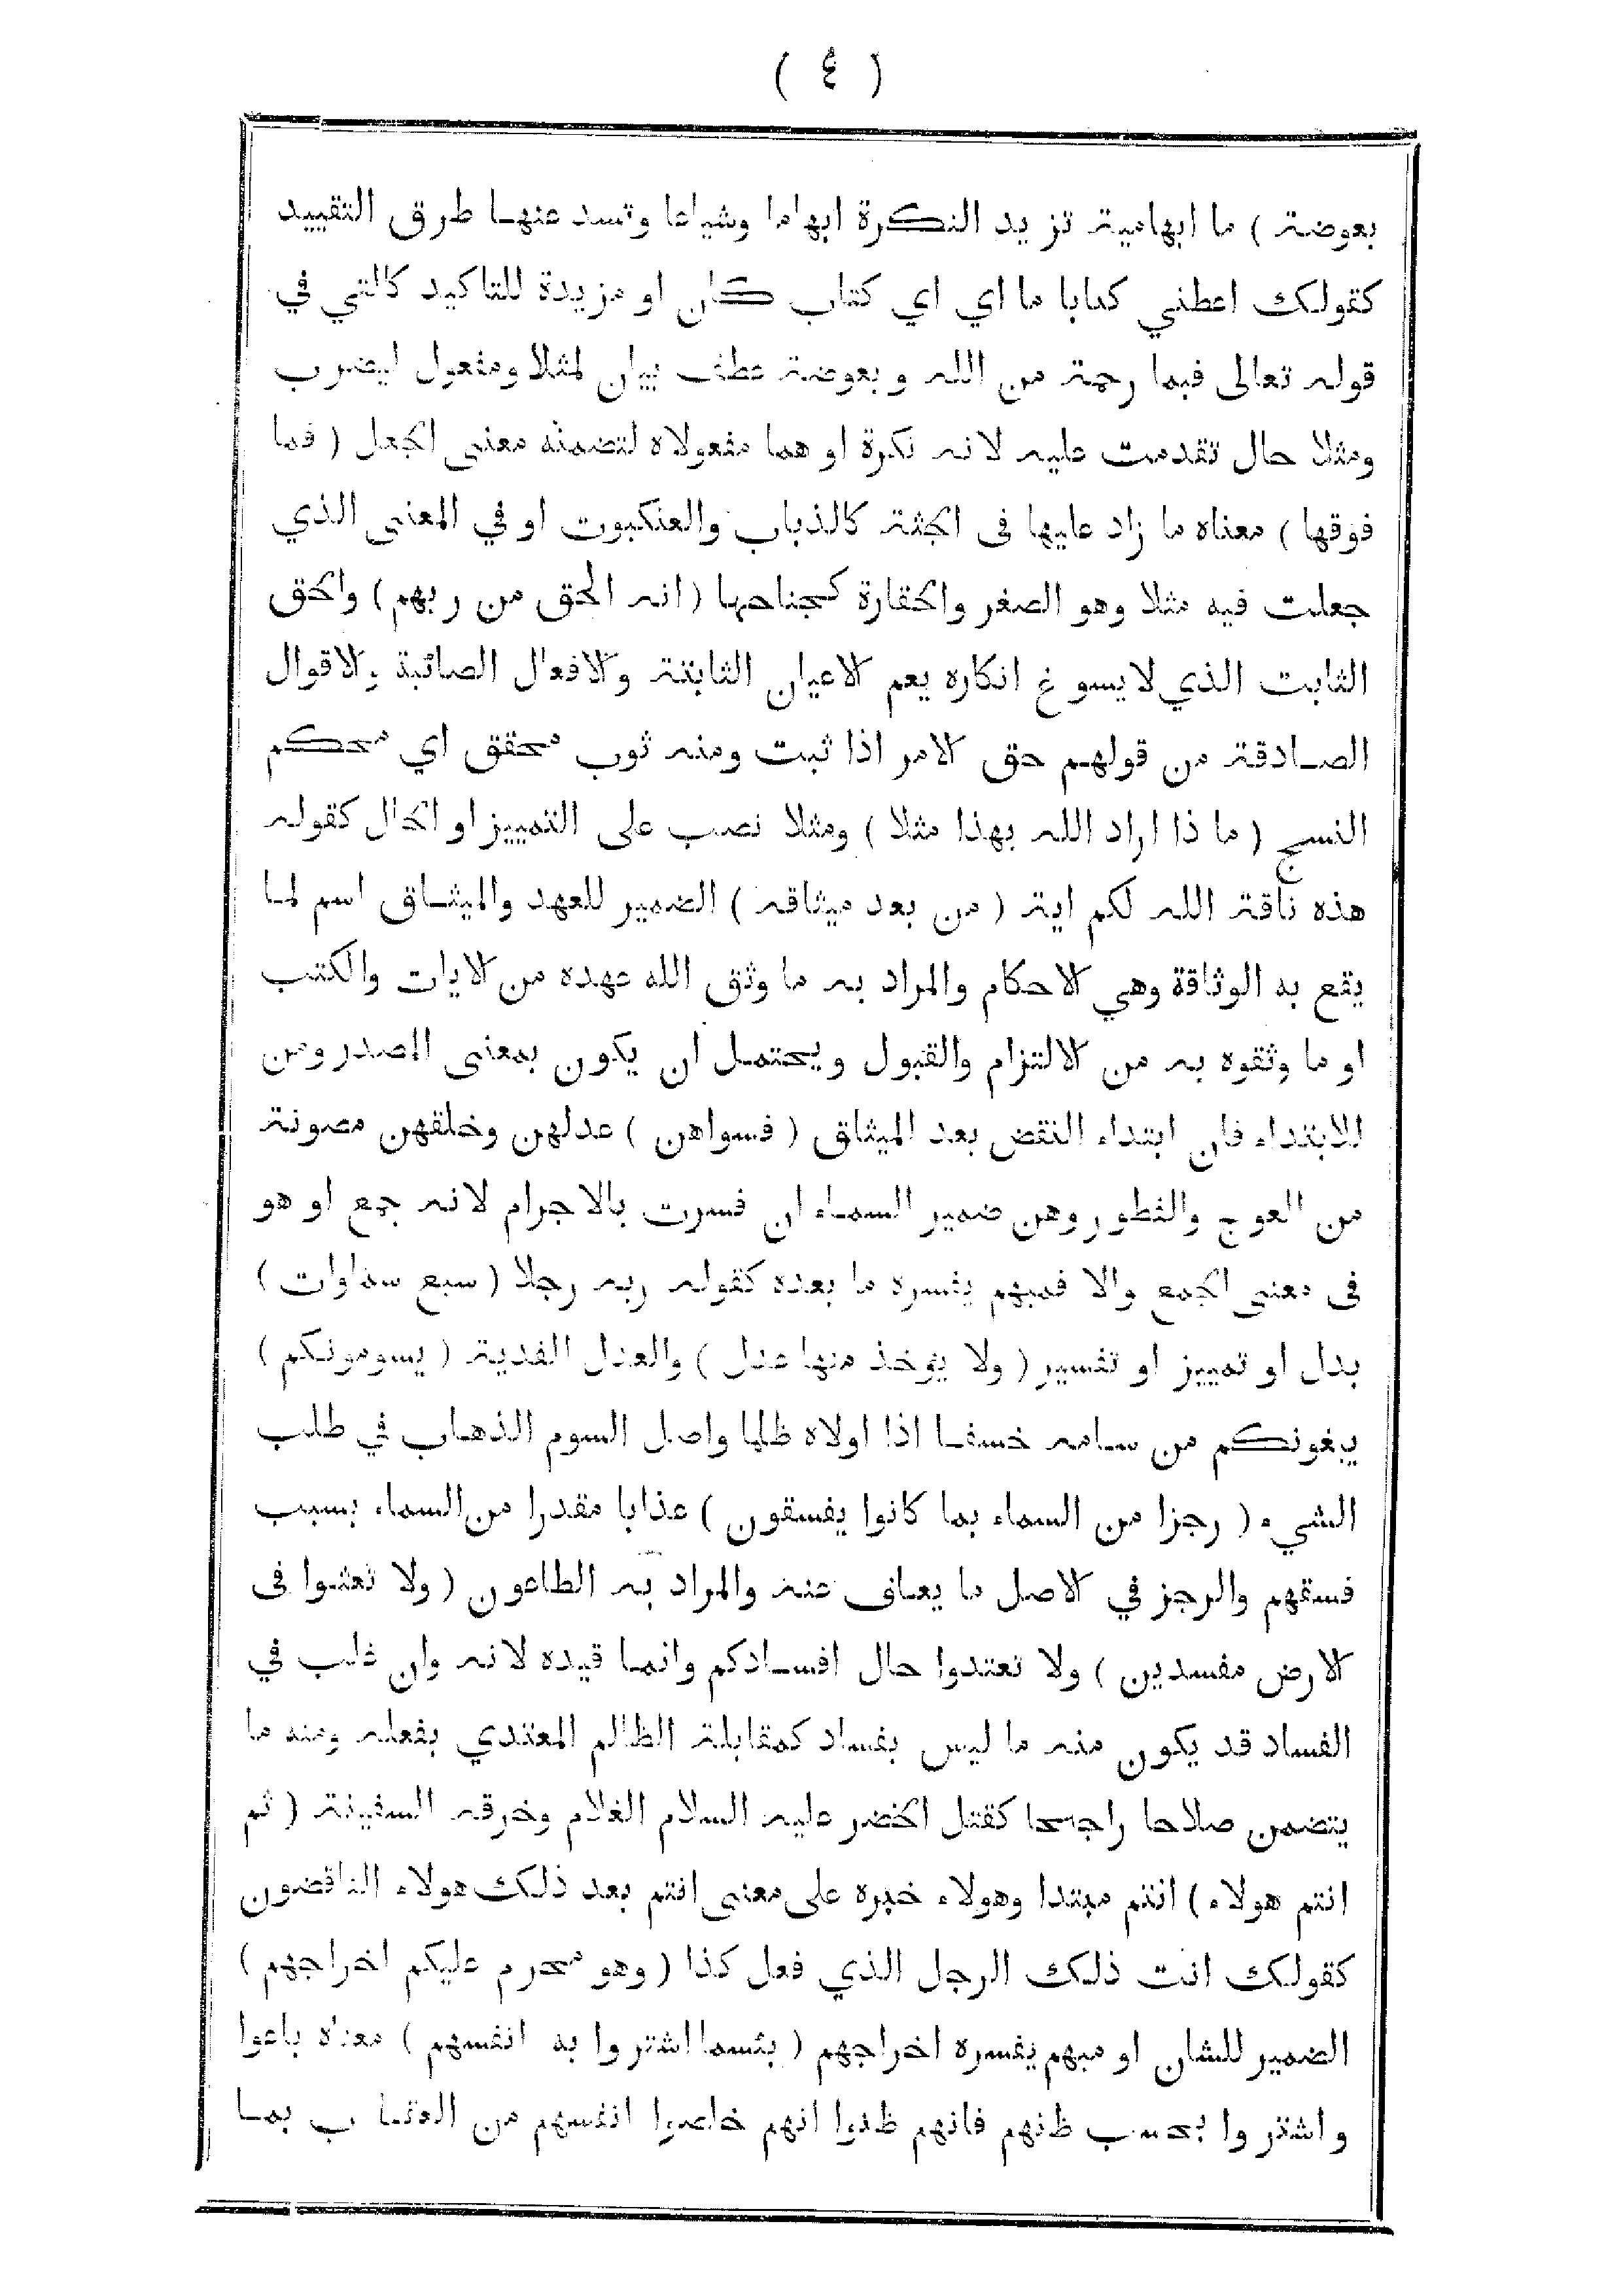 ( ٤ )
بعوضة ) ما ابهامية تزيد النكرة ابهاما وشياعا وتسد عنها طرق التقييد
كقولك اعطني كتابا ما اي اي كتاب كان او مزيدة للتاكيد كالتي في
قوله تعالى فبما رحمة من الله وبعوضة عطف بيان لمثلا ومفعول ليضرب
ومثلا حال تقدمت عليه لانه نكرة او هما مفعولاه لتضمنه معنى الجعل ( فما
فوقها ) معناه ما زاد عليها فى الجثة كالذباب والعنكبوت او في المعنى الذي
جعلت فيه مثلا وهو الصغر والحقارة كجناحها ( انه الحق من ربهم ) والحق
الثابت الذي لا يسوغ انكاره يعم الاعيان الثابتة والافعال الصائبة والاقوال
الصادقة من قولهم حق الامر اذا ثبت ومنه ثوب محقق اي محكم
النسج ( ما ذا اراد الله بهذا مثلا ) ومثلا نصب على التمييز او الحال كقوله
هذه ناقة الله لكم اية ( من بعد ميثاقه ) الضمير للعهد والميثاق اسم لما
يقع به الوثاقة وهي الاحكام والمراد به ما وثق الله عهده من الايات والكتب
او ما وثقوه به من الالتزام والقبول ويحتمل ان يكون بمعنى المصدر ومن
للابتداء فان ابتداء النقض بعد الميثاق ( فسواهن ) عدلهن وخلقهن مصونة
من العوج والفطور وهن ضمير السماء ان فسرت بالاجرام لانه جمع او هو
فى معنى الجمع والا فمبهم يفسره ما بعده كقوله ربه رجلا ( سبع سماوات )
بدل او تمييز او تفسير ( ولا يؤخذ منها عدل ) والعدل الفدية ( يسومونكم )
يبغونكم من سامه خسفا اذا اولاه ظلما واصل السوم الذهاب في طلب
الشيء ( رجزا من السماء بما كانوا يفسقون ) عذابا مقدرا من السماء بسبب
فسقهم والرجز في الاصل ما يعاف عنه والمراد به الطاعون ( ولا تعثوا فى
الارض مفسدين ) ولا تعتدوا حال افسادكم وانما قيده لانه وان غلب في
الفساد قد يكون منه ما ليس بفساد كمقابلة الظالم المعتدي بفعله ومنه ما
يتضمن صلاحا راجحا كقتل الخضر عليه السلام الغلام وخرقه السفينة ( ثم
انتم هولاء ) انتم مبتدا وهولاء خبره على معنى انتم بعد ذلك هولاء الناقضون
كقولك انت ذلك الرجل الذي فعل كذا ( وهو محرم عليكم اخراجهم )
الضمير للشان او مبهم يفسره اخراجهم ( بئسما اشتروا به انفسهم ) معناه باعوا
واشتروا بحسب ظنهم فانهم ظنوا انهم خلصوا انفسهم من العقاب بما